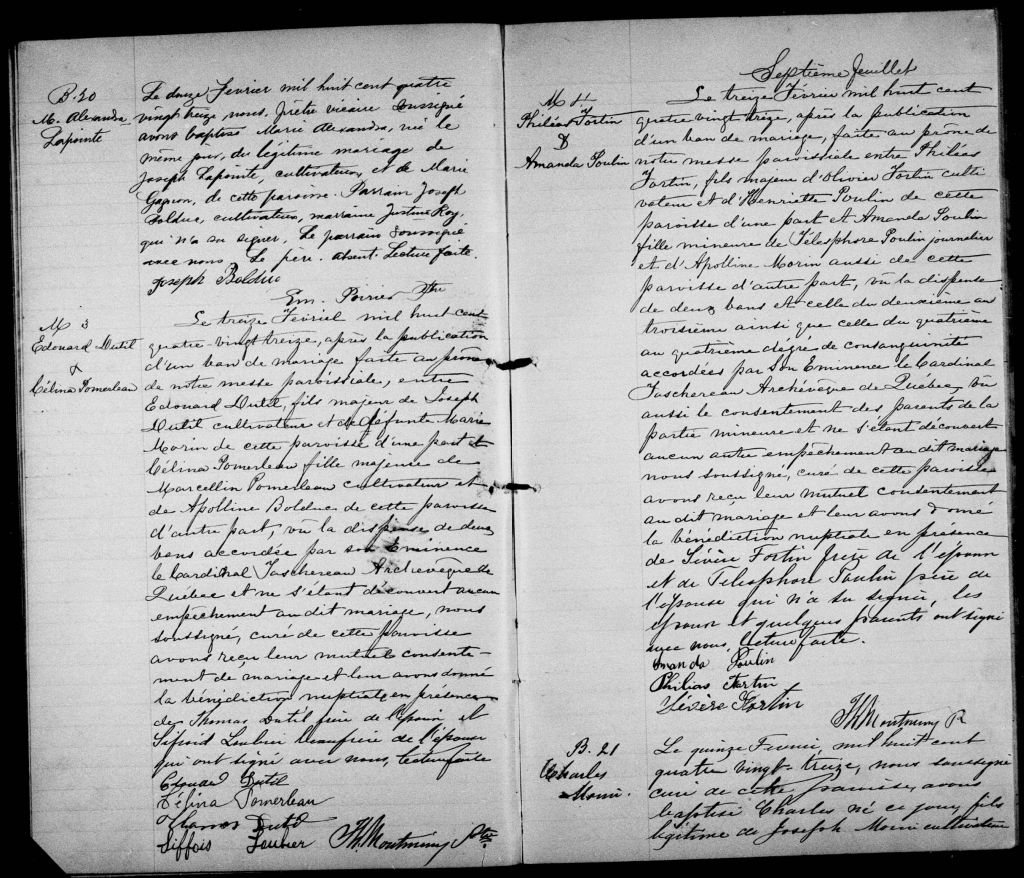 B. 20
M. Alexandra
Lapointe
Le douze Fevrier mil huit cent quatre
vingt treize, nous, prêtre vicaire soussigné
avons baptisé Marie Alexandra, née le
même jour, du légitime mariage de
Joseph Lapointe, cultivateur, et de Marie
Gagnon, de cette paroisse. Parrain Joseph
Bolduc, cultivateur, marraine Justine Roy,
qui n'a su signer. Le parrain soussigné
avec nous. Le père absent. Lecture faite.
Joseph Bolduc
Em. Poirier Ptre
M 3
Edouard Dutil
&
Célina Pomerleau
Le treize Févriel mil huit cent
quatre vingt treize, après la publication
d'un ban de mariage faite au prone
de notre messe paroissiale, entre
Edouard Dutil, fils majeur de Joseph
Dutil cultivateur et de défunte Marie
Morin de cette paroisse d'une part &
Célina Pomerleau fille majeure de
Marcellin Pomerleau cultivateur et
de Apolline Bolduc de cette paroisse
d'autre part, vû la dispense de deux
bans accordée par son Eminence
le Cardinal Taschereau Archevèque de
Québec et ne s'étant découvert aucun
empêchement au dit mariage, nous
soussigné, curé de cette paroisse
avons reçu leur mutuel consente-
ment de mariage et leur avons donné
la bénédiction nuptiale en présence
de Thomas Dutil frère de l'époux et
beaufrère de l'épouse
qui ont signé avec nous, lecture faite
Edouard Dutil
Célina Pomerleau
Thomas Dutil
Th. Montminy Ptre
Septième feuillet
M 4
Philéas Fortin
&
Amanda Poulin
Le treize Février mil huit cent
quatre vingt treize, après la publication
d'un ban de mariage, faite au prône de
notre messe paroissiale entre Philéas
Fortin, fils majeur d'Olivier Fortin culti
vateur et d'Henriette Poulin de cette
paroisse d'une part et Amanda Poulin
fille mineure de Télesphore Poulin journalier
et d'Apolline Morin aussi de cette
paroisse d'autre part, vû la dispense
de deux bans et celle du deuxième au
troisième ainsi que celle du quatrième
au quatrième dégré de consanguinité
accordées par Son Eminence le Cardinal
Taschereau Archévèque de Québec, vû
aussi le consentement des parents de la
partie mineure et ne s'étant découvert
aucun autre empêchement au dit mariage
nous soussigné, curé de cette paroisse
avons reçu leur mutuel consentement
au dit mariage et leur avons donné
la bénédiction nuptiale en présence
de Sévère Fortin frère de l'époux
et de Telesphore Poulin père de
l'épouse qui n'a su signer, les
époux et quelques parents ont signé
avec nous, lecture faite.
Amanda Poulin
Philias Fortin
Sévère Fortin
Th Montminy P
B. 21
Charles
Morin.
Le quinze Fevrier, mil huit cent
quatre vingt-treize, nous soussigné
curé de cette paroisse, avons
baptisé Charles né ce jour, fils
légitime de Joseph Morin cultivateur